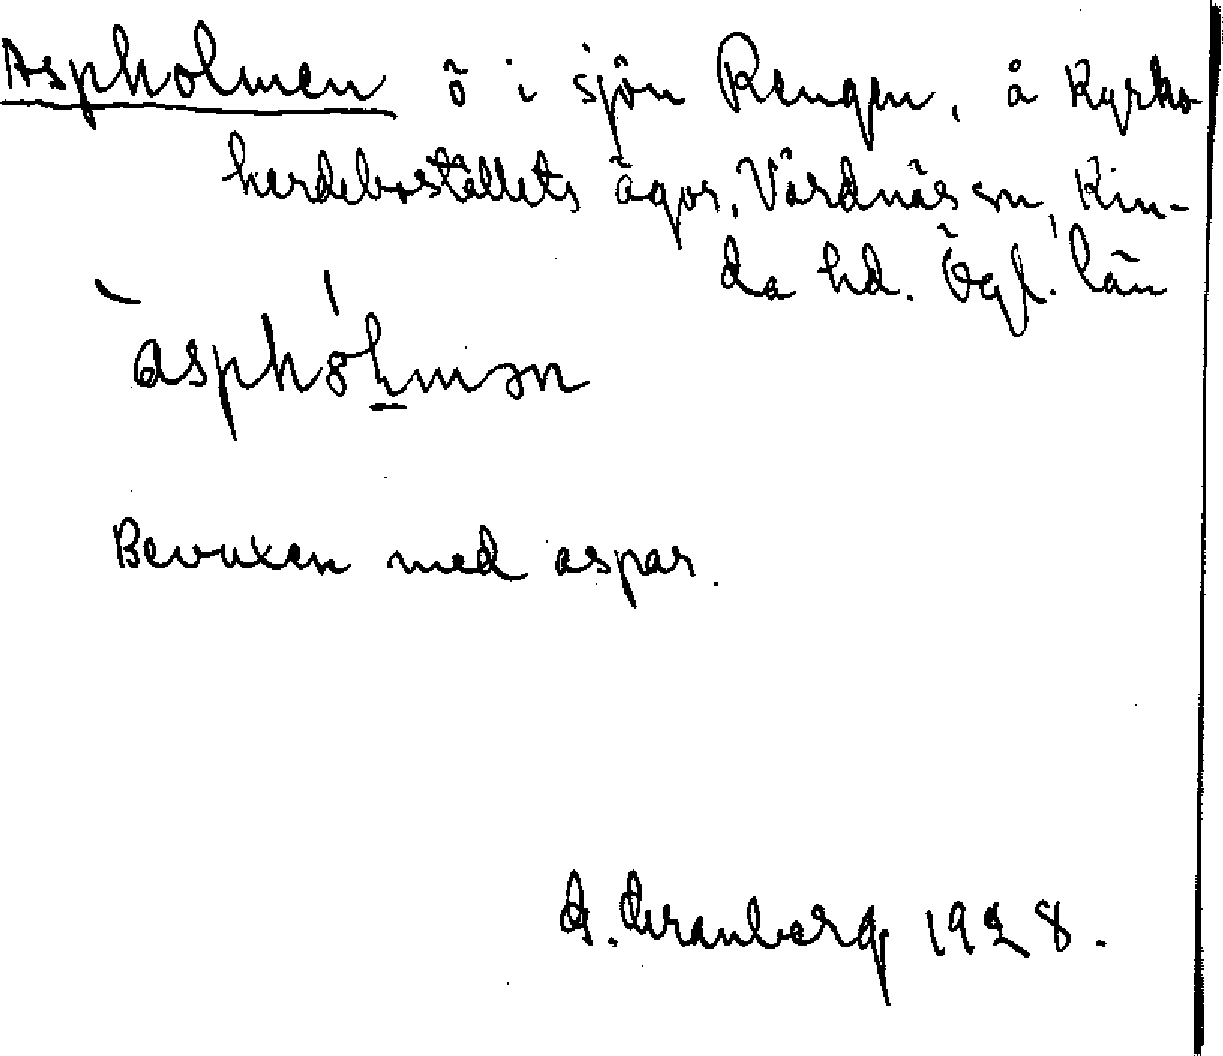 Aspholmen ö i sjön Rengen, å Kyrko-
herdebostället ägor, Vårdnäs sn, Kin-
da hd. Ögl. län
àsphólmən
Bevuxen med aspar.
G. Granberg 1928.